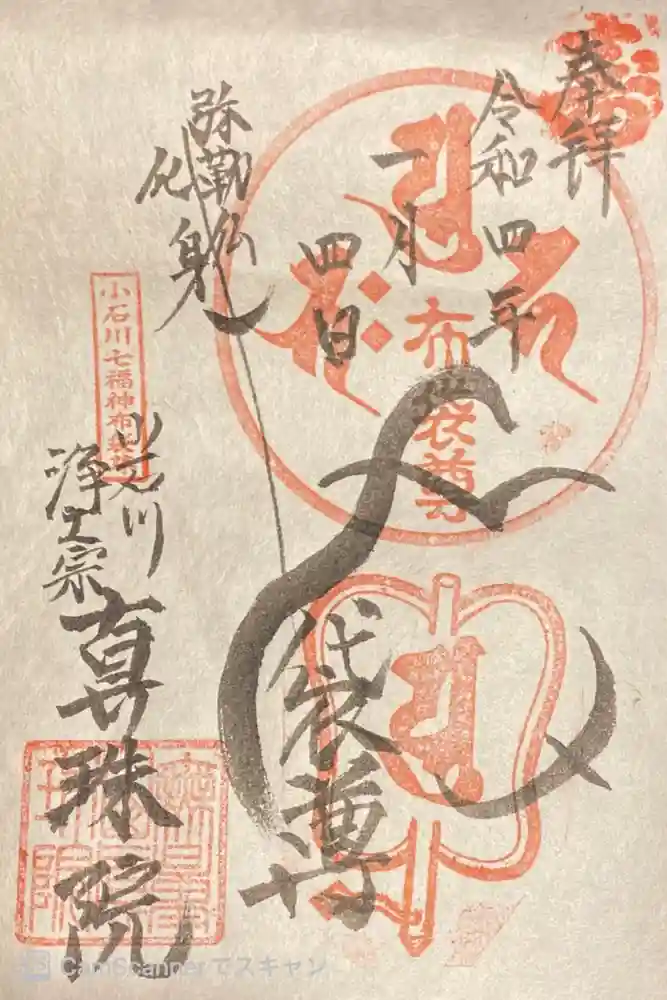 奉拝
令和四年
一月
四日
布袋尊
弥勒仏
化身
袋尊
小石川七福神布袋尊
小石川
浄土宗
真珠院
CamScannerでスキャン